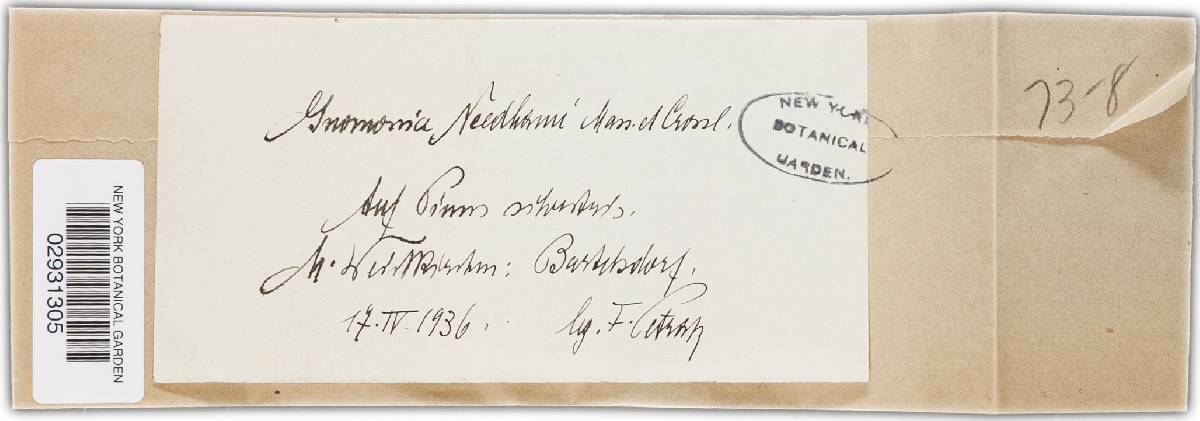 Gnomonia Needhami Mass. et Crossl.
NEW YORK
BOTANICAL
GARDEN.
73-8
Auf Pinus silvestris.
M. Weißkirchen: Bartelsdorf.
17. IV. 1936. lg. F. Petrak
NEW YORK BOTANICAL GARDEN
02931305